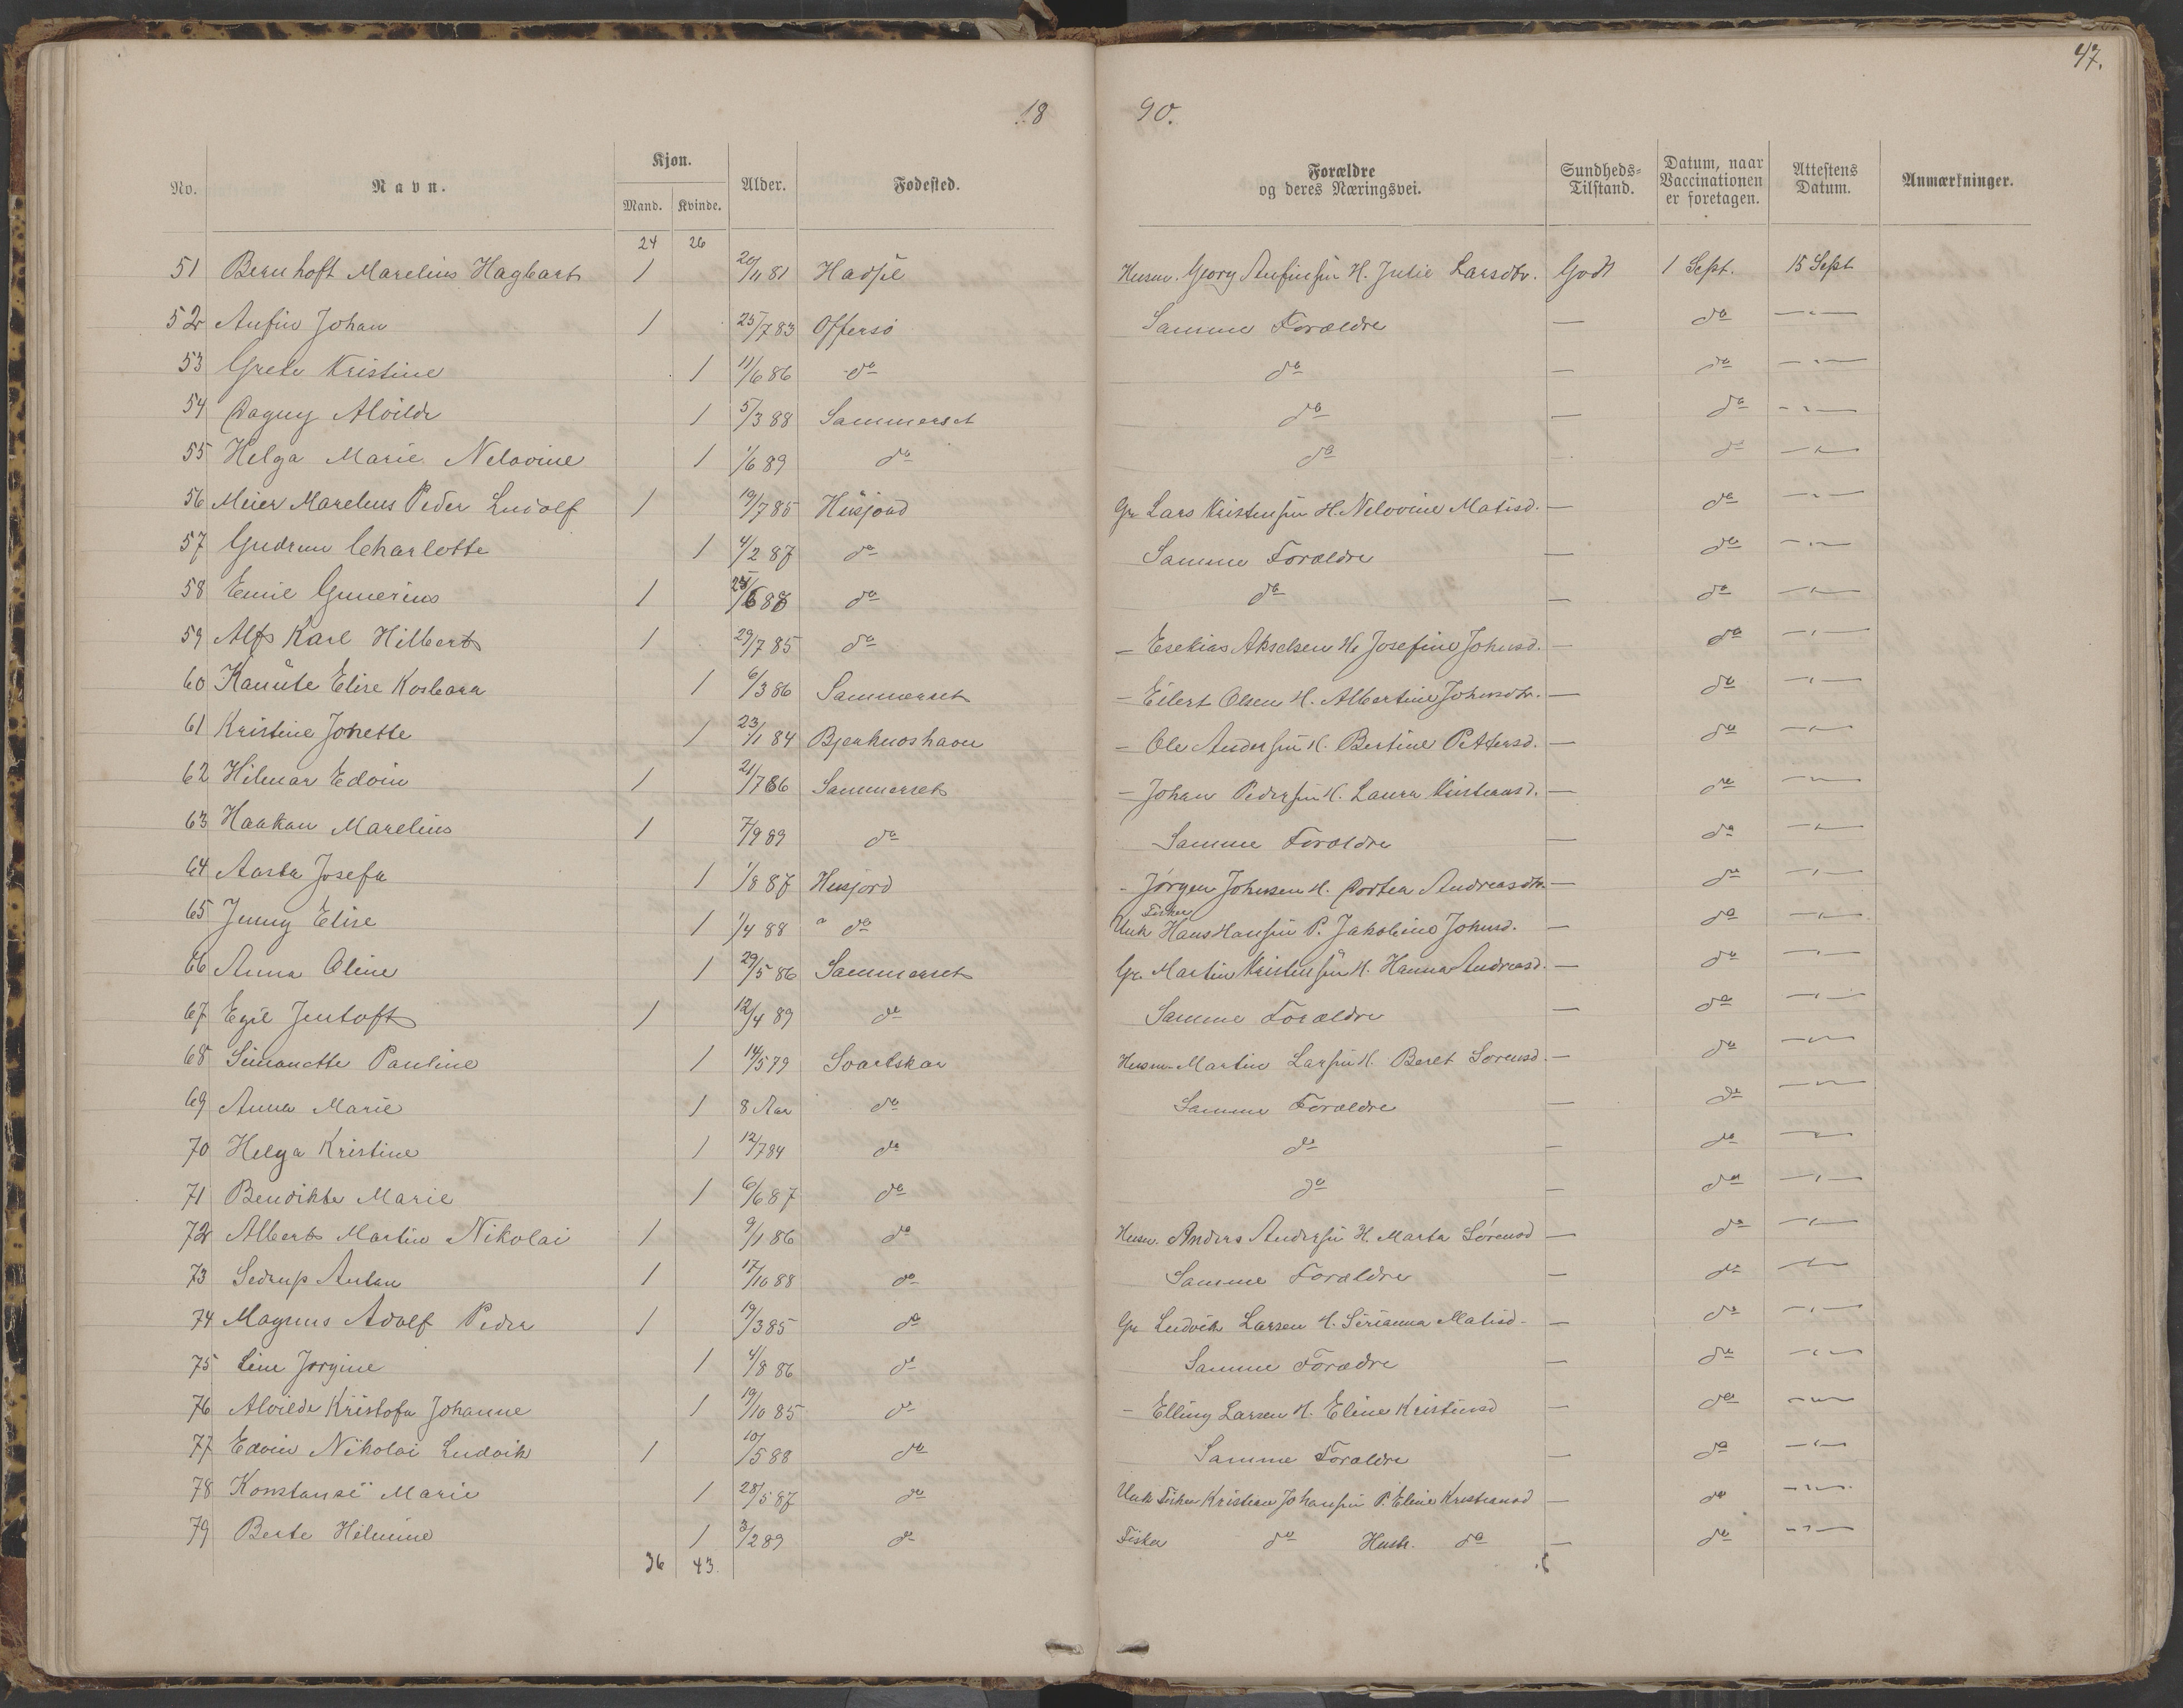 47.
18 90.
No. Navn. Kjøn. Alder. Fødested. Forældre og deres Næringsvei. Sundheds-Tilstand. Datum, naar Vaccinationen er foretagen. Attestens Datum. Anmærkninger.
Mand. Kvinde.
24 26
51 Bernhoft Marelius Hagbart 1 20/11 81 Hadsel Husm. Georg Anfinsen H. Julie Larsdtr. Godt 1 Sept. 15 Sept
52 Anfin Johan 1 25/7 83 Offersø Samme Forældre — do —"—
53 Grete Kristine 1 11/6 86 do do — do —"—
54 Dagny Alvilde 1 5/3 88 Sammerset do — do —"—
55 Helga Marie Nelovine 1 1/6 89 do do — do —"—
56 Meier Marelius Peder Ludolf 1 19/7 85 Husjord Gr. Lars Kristensen H. Nelovine Matisd. — do —"—
57 Gudrun Charlotte 1 4/2 87 do Samme Forældre — do —"—
58 Emil Gunerius 1 do do — do —"—
59 Alf Karl Hilbert 1 29/7 85 do — Esekias Akselsen H. Josefine Johnsd. — do —"—
60 Elise 1 6/3 86 Sammerset — Eilert Olsen H. Albertine Johnsdtr. — do —"—
61 Kristine Jonette 1 23/1 84 — Ole Andersen H. Bertine Pettersd. — do —"—
62 Hilmar Edvin 1 21/7 86 Sammerset — Johan Pedersen H. Laura Kristiansd. — do —"—
63 Haakon Marelius 1 7/9 89 do Samme Forældre — do —"—
64 Aasta Josefa 1 1/8 87 Husjord - Jørgen Johnsen H. Dortea Andreasdtr. — do —"—
65 Jenny Elise 1 1/4 88 " do Unk Fisker Hans Hansen P. Jakobine Johnsd. — do —"—
66 Anna Oline 1 29/5 86 Sammerset Gr. Martin Kristensen H. Hanna Andreasd. — do —"—
67 Egil Jentoft 1 12/4 89 do Samme Forældre — do —"—
68 Simonette Pauline 1 14/5 79 Svartskar Husm. Martin Larsen H. Beret Sorensd. — do —"—
69 Anna Marie 1 8 Aar do Samme Forældre — do —"—
70 Helga Kristine 1 12/7 84 do do — do —"—
71 Bendikte Marie 1 6/6 87 do do — do —"—
72 Albert Martin Nikolai 1 9/1 86 do Husm. Anders Andersen H. Marta Sørensd — do —"—
73 Sedrup Antan 1 17/10 88 do Samme Forældre — do —"—
74 Magnus Adolf Peder 1 19/3 85 do Gr Ludvik Larsen H. Sirianna Matisd. — do —"—
75 Line Jørgine 1 4/8 86 do Samme Forædre — do —"—
76 Alvilde Kristofa Johanne 1 19/10 85 do — Elling Larsen H. Eline Kristensd — do —"—
77 Edvin Nikolai Ludvik 1 10/5 88 do Samme Forældre — do —"—
78 Konstanse Marie 1 28/5 87 do Unk Fisker Kristian Johansen P. Eline Kristiansd — do —"—
79 Berte Hilmine 1 3/2 89 do Fisker do Hustr. do — do —"—
36 43.